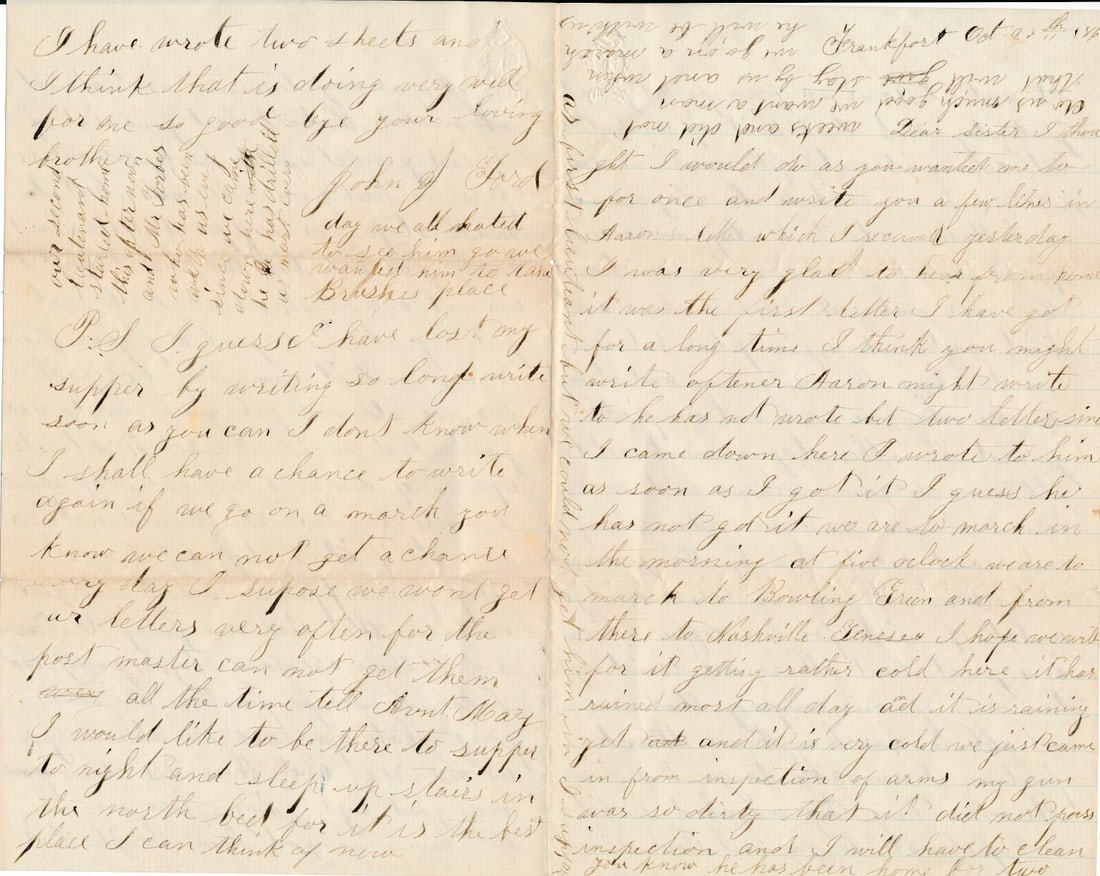 I have wrote two sheets and
I think that is doing very well
for me so good bye your loving
brother
John J Ford
our second
lieutenant
started home
this afternoon
and Mr Forbes
who has been
with us ever
since we came
down here
he has billed
us most every
day we all hated
to see him go we
wanted him to take
Brushes place
P.S I guess I have lost my
supper by writing so long write
soon as you can I dont know when
I shall have a chance to write
again if we go on a march you
know we can not get a chance
every day I supose we wont get
our letters very often for the
post master can not get them
all the time tell Aunt Mary
I would like to be there to supper
to night and sleep up stairs in
the north bed for it is the best
place I can think of now
Frankfort Oct
Dear sister I thou
ght I would do as you wanted me to
for once and write you a few lines in
Aarons which I received yesterday
I was very glad to hear from home
it was the first letter I have got
for a long time I think you might
write oftener Aaron might write
to he has not wrote but two letters since
I came down here I wrote to him
as soon as I got it I guess he
has not got it we are to march in
the morning at five oclock we are to
march to Bowling Green and from
there to Nashville Tenesee I hope we will
for it getting rather cold here it has
rained most all day ad it is raining
yet and it is very cold we just came
in from inspection of arms my gun
was so dirty that it did not pass
inspection and I will have to clean
you know he has been home for two
weeks and did not
do us much good we want a man
that will stay by us and when
we go on a march
he will be with us
as first lieutenant but we could not get him in I supose